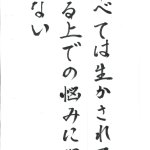 べては生かされ
る上での悩みに
ない